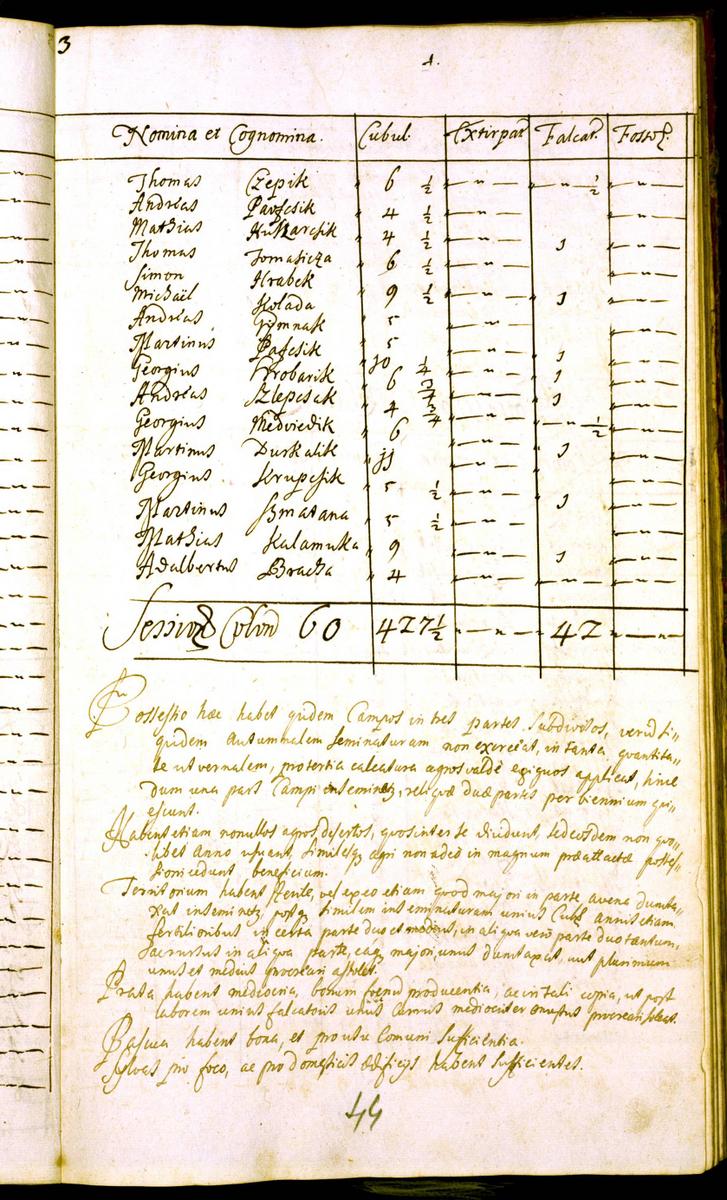 3
4.
Nomina et Cognomina. Cubul. Extirpat Falcat. Fossor.
Thomas Czepik 6 ½ — " — — " — ½ — " —
Andreas Pavscsik 4 ½ — " — — " —
Mathias Kukarcsik 4 ½ — " — 1 — " —
Thomas Tomasicza 6 ½ — " — — " —
Simon Hrabek 9 ½ — " — 1 — " —
Michaël Kolada 5 — " — — " —
Andreas Gymnak 5 — " — 1 — " —
Martinus Pafcsik 10 ¼ — " — 1 — " —
Georgius Vrobarik 6 ¾ — " — 1 — " —
Andreas Szlepcsak 4 ¾ — " — — " — ½ — " —
Georgius Medviedik 6 — " — 1 — " —
Martinus Durkalik 11 — " — — " —
Georgius Krupcsik 5 ½ — " — 1 — " —
Martinus Smatana 5 ½ — " — — " —
Mathias Kalamuka 9 — " — 1 — " —
Adalbertus Bracha 4 — " — — " — — " —
Session Colon 60 427½ — " — 42 — " —
Possessio hæc habet quidem Campos in tres partes Subdivisos, verùm si„
quidem Autumnalem seminaturam non exerceat, in tanta quantita„
te ut vernalem, pro tertia calcatura agros valdè exiguos applicat, hinc
dum una pars Campi inseminetur, reliquæ duæ partes per biennium qui„
escunt.
Habent etiam nonullos agros desertos, quos inter se dividunt, sed eosdem non quo„
libet Anno usuant, similesque agri non adeò in magnum præattactæ posses„
sioni cedunt beneficium.
Territorium habent sterile, vel ex eo etiam quod majori in parte, avena dumta„
xat inseminetur, post similem inseminaturam unius Cubuli annis etiam
fertilioribus in certa parte duo et medius, in aliqua verò parte duo tantum,
rursus in aliqua parte, eaque majori, unus dumtaxat, aut plurimum
unus et medius procreari assolet.
Prata habent mediocria, bonum foenum producentia, ac in tali copia, ut post
laborem unius falcatoris unus currus mediocriter onustus procreari soleat.
Pascua habent bona, et pro usu Comuni sufficientia.
Sylvas pro foco, ac pro domesticis ædificijs habent sufficientes.
44